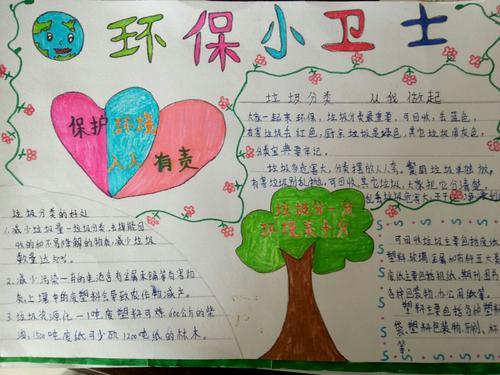 环保小卫士
垃圾分类 从我做起
大家一起来环保，垃圾分类最重要，可回收，去蓝色，
有害垃圾去红色，厨余垃圾是绿色，其它垃圾用灰色，
分类宝典要牢记。
垃圾危害大，分类摆放人人夸。
有害垃圾
可回收其它垃圾，大家把
保护环境
人人有责
垃圾分一分
环境美十分
垃圾分类的好处
1.减少垃圾量一垃圾分类，去掉能回
收的和不易降解的物质，减少垃圾
数量达
2.减少污染一有的电池含有金属汞镉等有害物
质，土壤中的废塑料会导致农作物减产。
3.垃圾资源化一1吨废塑料可炼600公斤的柴
油，1500吨废纸可少砍1200吨纸的林木。
可回收垃圾主要包括废纸，
塑料，玻璃，金属和布料五大类
废纸主要包括报纸，期刊图书
各种包装物，办公用纸等。
塑料主要包括各种塑料
袋，塑料包装物，牙刷，杯
等